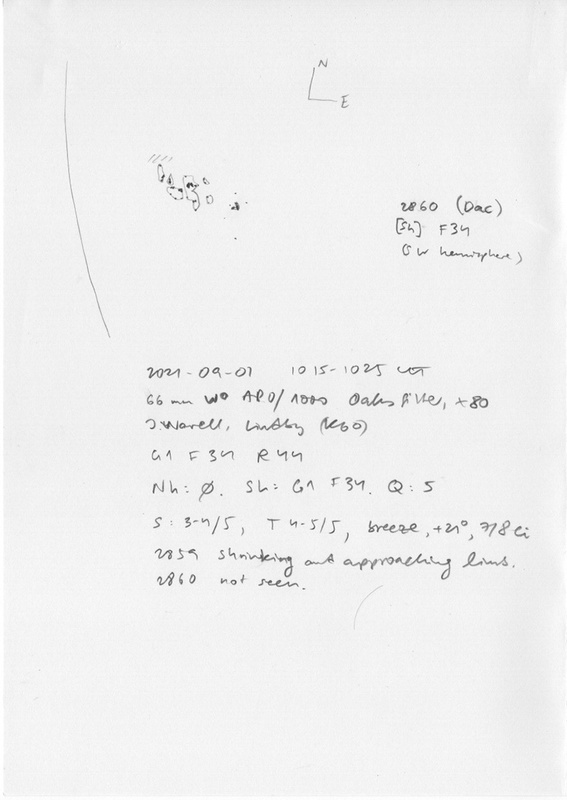 N
E
2860 (Dac)
[Sh] F34
(SW hemisphere)
2021-09-01 1015-1025 UT
66 mm WO APO/1000 Oaks filter, ×80
J. Warell, Lindby (K60)
G1 F34 R44
NH: Ø. SH: G1 F34. Q: 5
S: 3-4/5, T 4-5/5, breeze, +21°, 7/8 Ci
2859 shrinking and approaching limb.
2860 not seen.